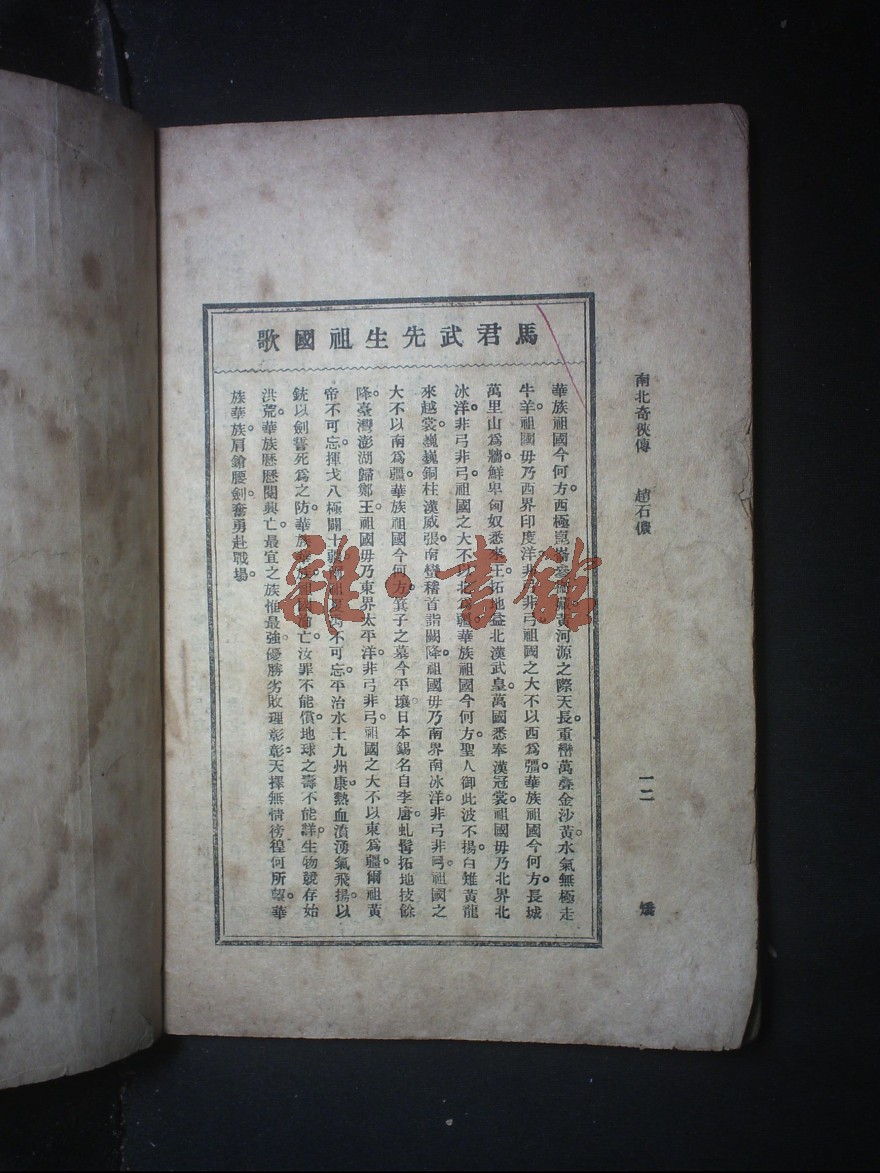 南北奇俠傳 趙石儂
一二
馬君武先生祖國歌
華族祖國今何方。西極崑崙黃河源之際天長。重巒萬疊金沙黃。水氣無極走
牛羊。祖國毋乃西界印度洋。非弓非弓。祖國之大不以西爲彊。華族祖國今何方。長城
萬里山爲牆。鮮卑匈奴悉來王。拓地益北漢武皇。萬國悉奉漢冠裳。祖國毋乃北界北
冰洋。非弓非弓。祖國之大不以北爲疆。華族祖國今何方。聖人御此波不揚。白雉黃龍
來越裳。巍巍銅柱漢威張。南蠻稽首詣闕降。祖國毋乃南界南冰洋。非弓非弓。祖國之
大不以南爲疆。華族祖國今何方。箕子之墓今平壤。日本錫名自李唐。虬髯拓地技餘
降。臺灣澎湖歸鄭王。祖國毋乃東界太平洋。非弓非弓。祖國之大不以東爲疆。爾祖黃
帝不可忘。揮戈八極闢十疆。爾祖夏禹不可忘。平治水土九州康。熱血濆湧氣飛揚。以
銃以劍誓死爲之防。華族華族。祖國淪亡汝罪不能償。地球之壽不能詳。生物競存始
洪荒。華族歷歷閱興亡。最宜之族惟最強。優勝劣敗理彰彰。天擇無情徬徨何所望。華
族華族。肩鎗腰劍奮勇赴戰場。
雜·書館